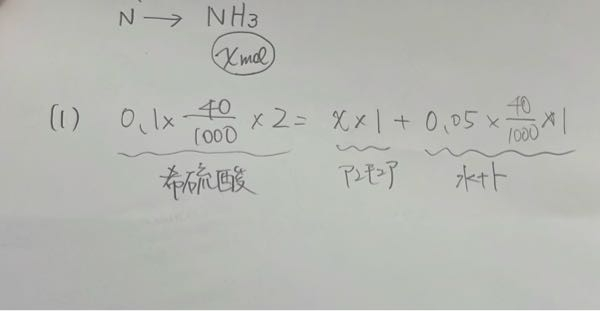 N → NH3
xmol
(1) 0.1× 40/1000 ×2= x×1 + 0.05× 40/1000 ×1
希硫酸 アンモニア 水+ト